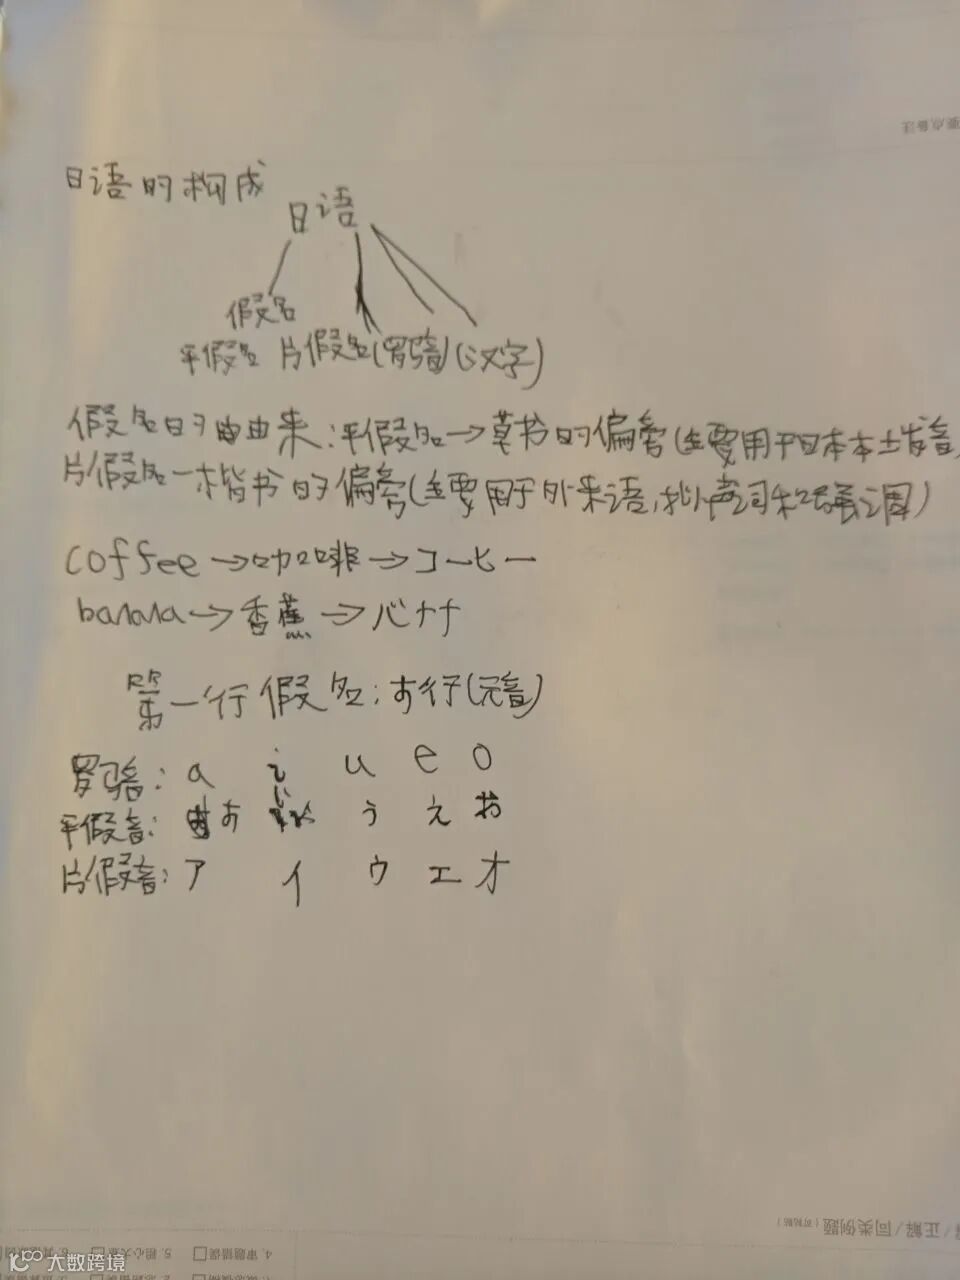 日语的构成
日语
假名
平假名 片假名(罗马音)(汉字)
假名的由来:平假名→草书的偏旁(主要用于日本本土发音,
片假名—楷书的偏旁(主要用于外来语,拟声词和强调)
coffee→咖啡→コーヒー
banana→香蕉→バナナ
第一行假名:あ行(元音)
罗马音: a i u e o
平假音: あ い う え お
片假音: ア イ ウ エ オ
要点备注
正解/同类例题(可粘贴)
4. 审题错误 5. 粗心大意
大数跨境